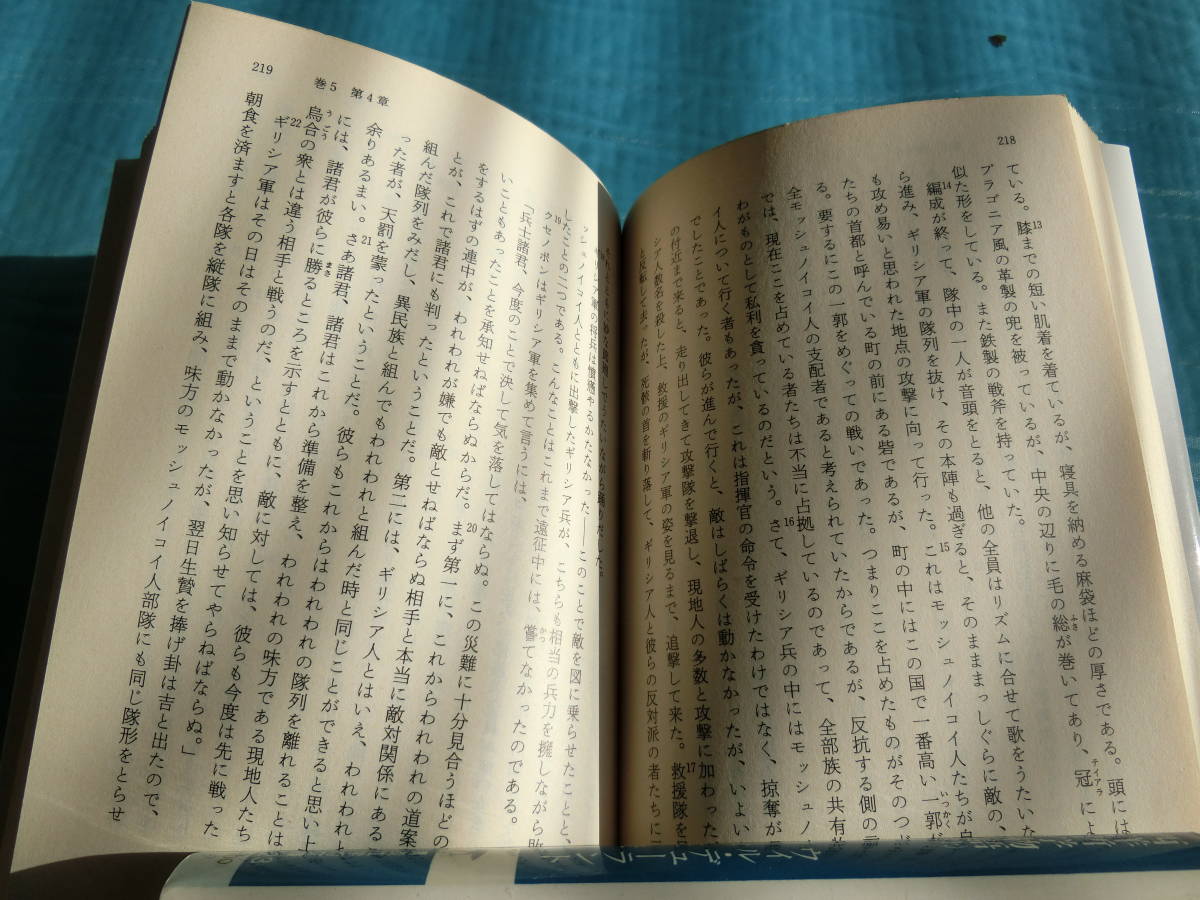 218
ている。13膝までの短い肌着を着ているが、寝具を納める麻袋ほどの厚さである。頭には
プラゴニア風の革製の兜を被っているが、中央の辺りに毛の総が巻いてあり、冠によ
似た形をしている。また鉄製の戦斧を持っていた。
14編成が終って、隊中の一人が音頭をとると、他の全員はリズムに合せて歌をうたいな
ら進み、ギリシア軍の隊列を抜け、その本陣も過ぎると、そのまままっしぐらに敵の、
も攻め易いと思われた地点の攻撃に向って行った。15これはモッシュノイコイ人たちが自
たちの首都と呼んでいる町の前にある砦であるが、町の中にはこの国で一番高い一郭が
る。要するにこの一郭をめぐっての戦いであった。つまりここを占めたものがそのつど
全モッシュノイコイ人の支配者であると考えられていたからであるが、反抗する側の言
では、現在ここを占めている者たちは不当に占拠しているのであって、全部族の共有
わがものとして私利を貪っているのだという。16さて、ギリシア兵の中にはモッシュノ
イ人について行く者もあったが、これは指揮官の命令を受けたわけではなく、掠奪が
でしたことであった。彼らが進んで行くと、敵はしばらくは動かなかったが、いよい
の付近まで来ると、走り出してきて攻撃隊を撃退し、現地人の多数と攻撃に加わった
シア人数名を殺した上、救援のギリシア軍の姿を見るまで、追撃して来た。17救援隊を見
と反転して去ったが、死骸の首を斬り落して、ギリシア人と彼らの反対派の者たちに
219
巻5 第4章
ギリシア軍の将兵は憤懣やるかたなかった――このことで敵を図に乗らせたことと、
ッシュノイコイ人とともに出撃したギリシア兵が、こちらも相当の兵力を擁しながら敗
したことの二つである。こんなことはこれまで遠征中には、嘗てなかったのである。
19クセノポンはギリシア軍を集めて言うには、
「兵士諸君、今度のことで決して気を落してはならぬ。この災難に十分見合うほどの
いこともあったことを承知せねばならぬからだ。20まず第一に、これからわれわれの道案
をするはずの連中が、われわれが嫌でも敵とせねばならぬ相手と本当に敵対関係にある
とが、これで諸君にも判ったということだ。第二には、ギリシア人とはいえ、われわれと
組んだ隊列をみだし、異民族と組んでもわれわれと組んだ時と同じことができると思い上
った者が、天罰を蒙ったということだ。彼らもこれからはわれわれの隊列を離れることは
余りあるまい。21さあ諸君、諸君はこれから準備を整え、われわれの味方である現地人たち
には、諸君が彼らに勝るところを示すとともに、敵に対しては、彼らも今度は先に戦った
烏合の衆とは違う相手と戦うのだ、ということを思い知らせてやらねばならぬ。」
22ギリシア軍はその日はそのままで動かなかったが、翌日生贄を捧げ卦は吉と出たので、
朝食を済ますと各隊を縦隊に組み、味方のモッシュノイコイ人部隊にも同じ隊形をとらせ
ウィル・デューラント